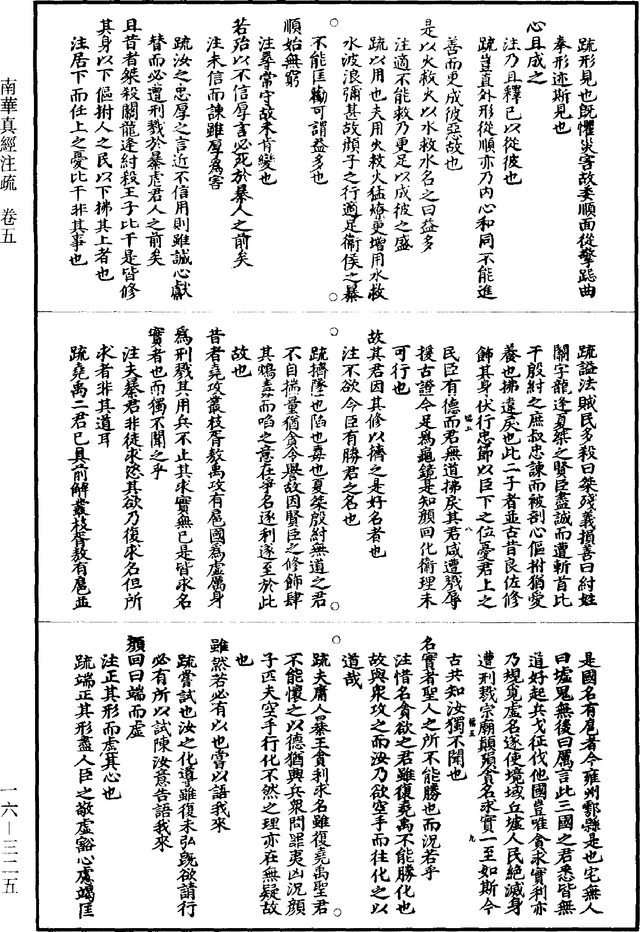 南華真經注疏　卷五
一六—三二五
疏形見也旣懼災害故委順面從擎跽曲
拳形迹斯見也
心且成之
注乃且釋已以從彼也
疏豈直外形從順亦乃內心和同不能進
善而更成彼惡故也
是以火救火以水救水名之曰益多
注適不能救乃更足以成彼之盛
疏以用也夫用火救火猛燎更增用水救
水波浪彌甚故顏子之行適是衞侯之暴
不能匡勸可謂益多也
順始無窮
注尋常守故未肯變也
若殆以不信厚言必死於暴人之前矣
注未信而諫雖厚爲害
疏汝之忠厚之言近不信用則雖誠心獻
替而必遭刑戮於暴虐君人之前矣
且昔者桀殺關龍逢紂殺王子比干是皆修
其身以下傴拊人之民以下拂其上者也
注居下而任上之憂比干非其事也
疏謚法賊民多殺曰桀殘義損善曰紂姓
關字龍逢夏桀之賢臣盡誠而遭斬首比
干殷紂之庶叔忠諫而被剖心傴拊猶愛
養也拂違戾也此二子者並古昔良佐修
飾其身伏行忠節以臣下之位憂君上之
民臣有德而君無道拂戾其君咸遭戮辱
援古證今足爲龜鏡是知顏回化衞理未
可行也
故其君因其修以擠之是好名者也
注不欲令臣有勝君之名也
疏擠墜也陷也毒也夏桀殷紂無道之君
不自揣量猶貪令譽故因賢臣之修飾肆
其鴆毒而陷之意在爭名逐利遂至於此
故也
昔者堯攻叢枝胥敖禹攻有扈國爲虛厲身
爲刑戮其用兵不止其求實無已是皆求名
實者也而獨不聞之乎
注夫暴君非徒求恣其欲乃復求名但所
求者非其道耳
疏堯禹二君已具前解叢枝胥敖有扈並
是國名有扈者今雍州鄠縣是也宅無人
曰墟鬼無後曰厲言此三國之君悉皆無
道好起兵戈征伐他國豈唯貪求實利亦
乃規覓虛名遂使境域丘墟人民絶滅身
遭刑戮宗廟顛殞貪名求實一至如斯今
古共知汝獨不聞也
名實者聖人之所不能勝也而況若乎
注惜名貪欲之君雖復堯禹不能勝化也
故與衆攻之而汝乃欲空手而往化之以
道哉
疏夫庸人暴王貪利求名雖復堯禹聖君
不能懷之以德猶興兵衆問罪夷凶況顏
子匹夫空手行化不然之理亦在無疑故
也
雖然若必有以也嘗以語我來
疏嘗試也汝之化導雖復未弘旣欲請行
必有所以試陳汝意告語我來
顏回曰端而虛
注正其形而虛其心也
疏端正其形盡人臣之敬虛豁心慮竭匡